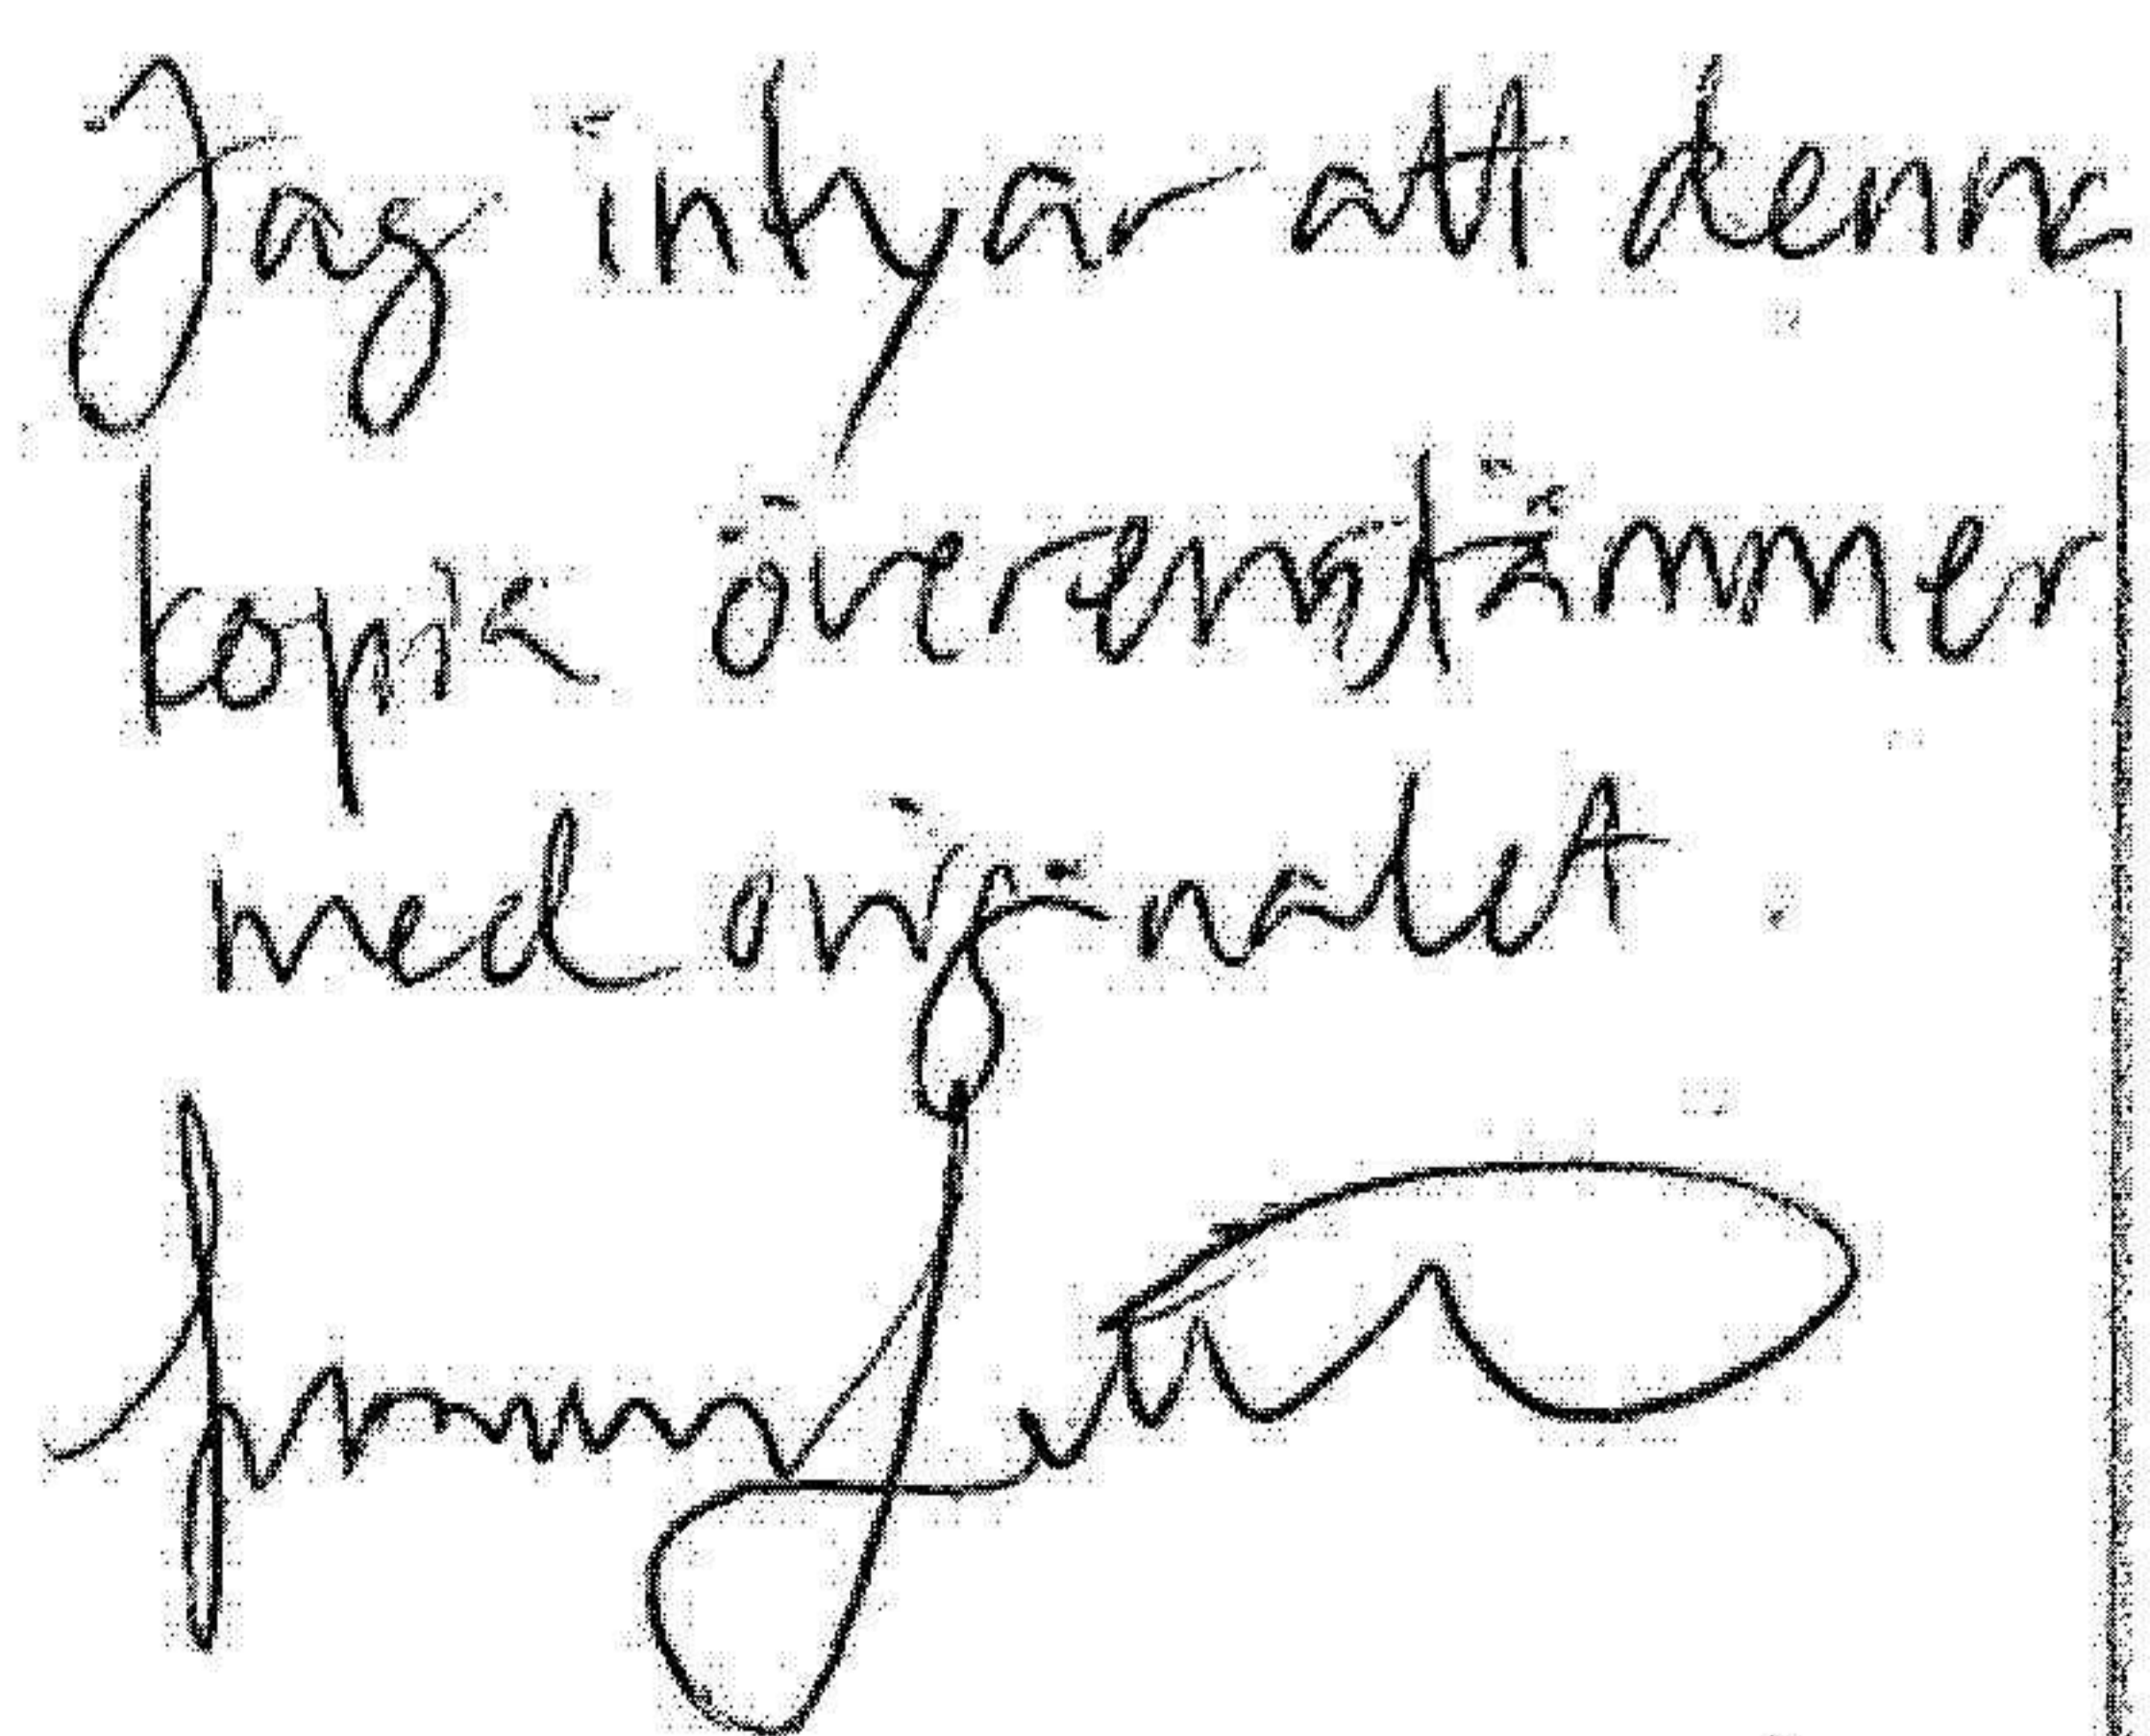 Jag intygar att denna
kopia överensstämmer
med originalet.